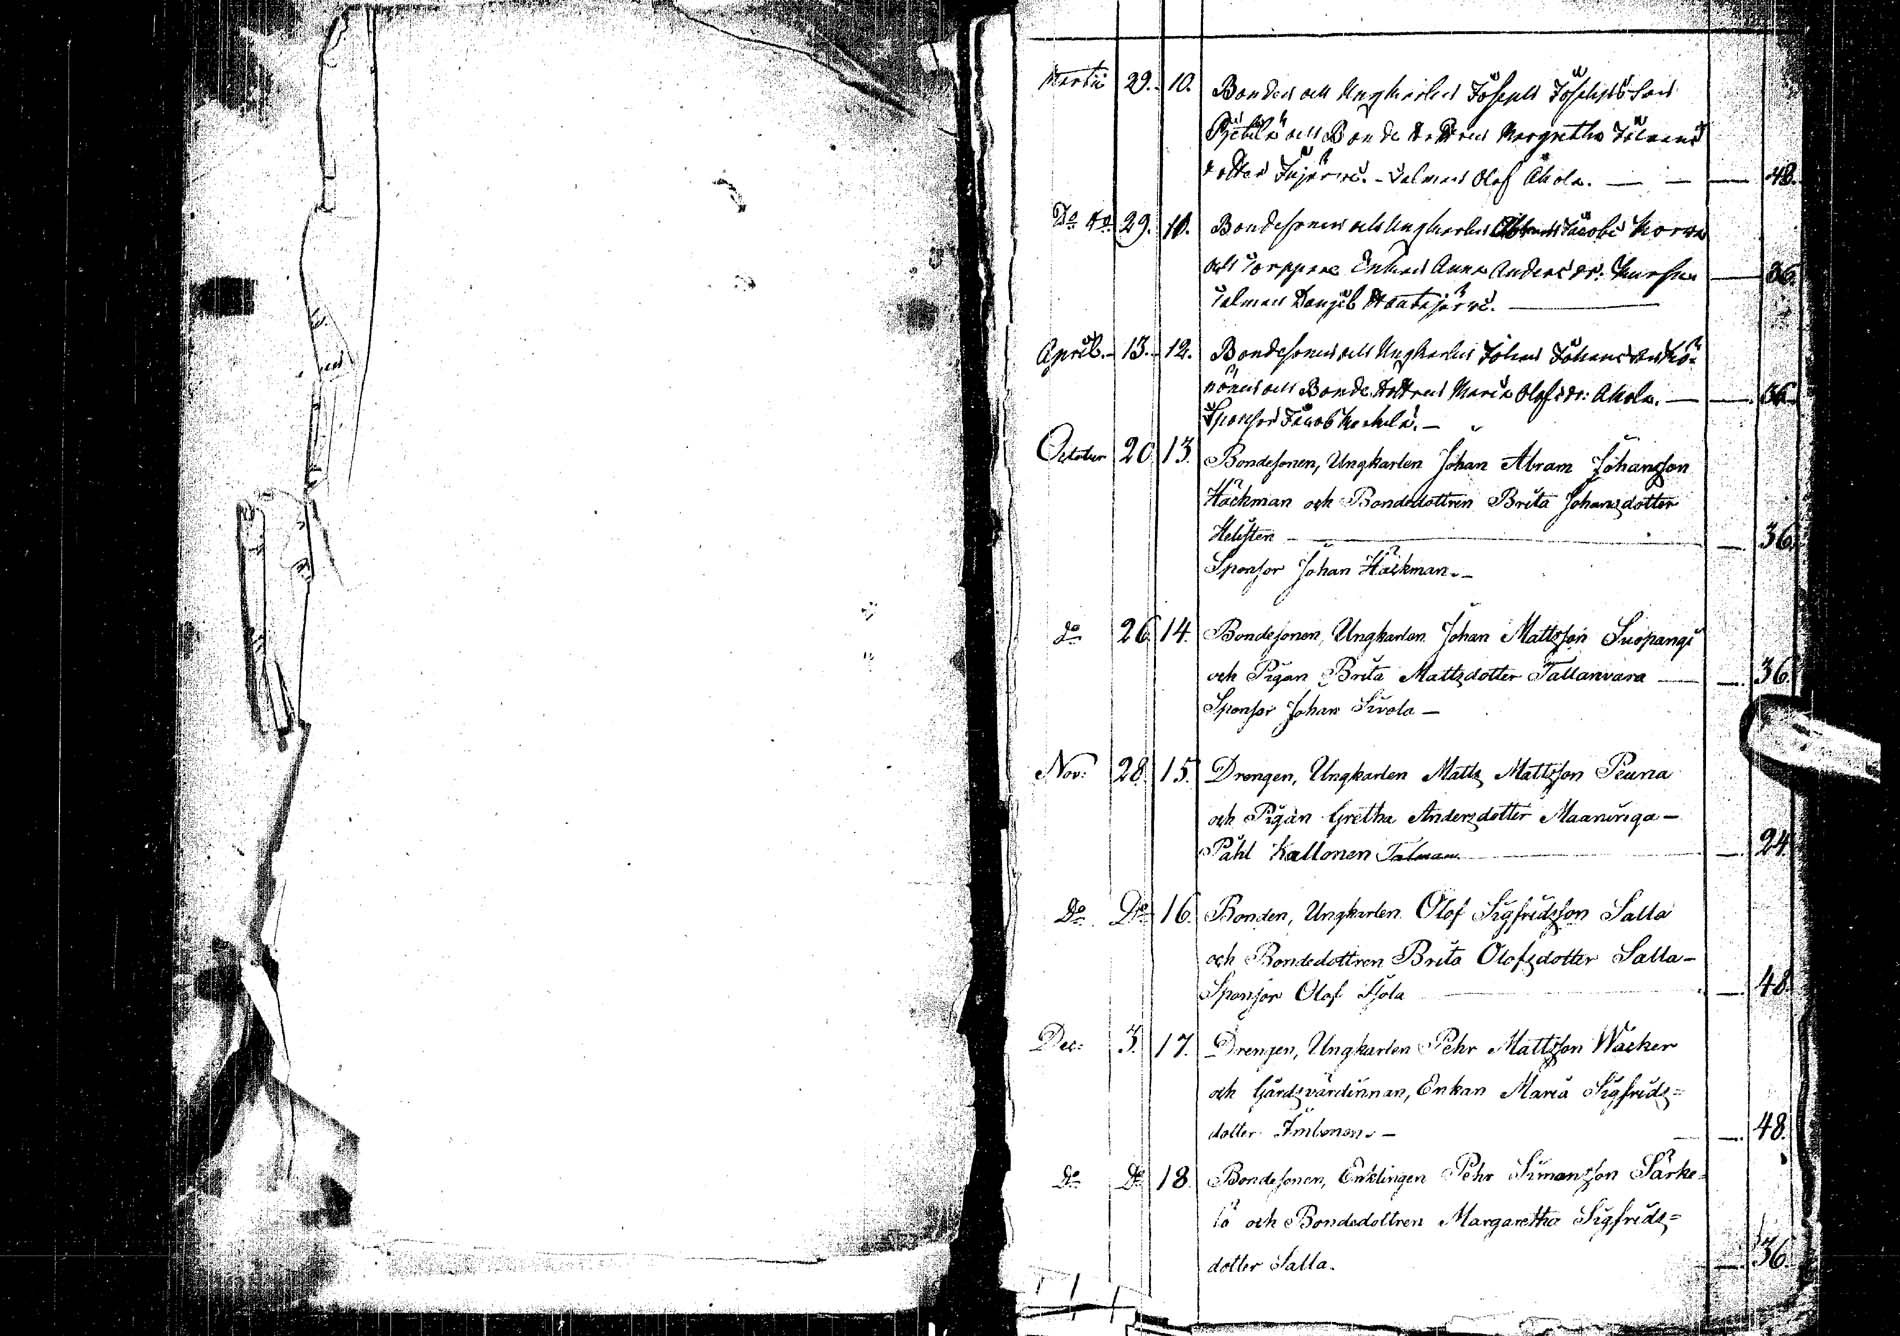 Martii 29. 10. Bonden och Ungkarlen Joseph Josephsson
och Bondedottren Margretha
dotter Kujärvi. - Talman Olof Ahola. — — — 48.
Do do 29. 11. Bondesonen och Ungkarlen Jacobs Korva
och Torppare Enkan Anna Anders dr: Kursu — 36.
Talman Daniel
April. 13. 12. Bondesonen och Ungkarlen Johan Johansson
och Bonde Dottren Maria Olofsdr: Ahola. — — 36.
Sponsor Jacob
October 20 13. Bondesonen, Ungkarlen Johan Abram Johansson
Häckman och Bondedottren Brita Johansdotter
Helisten — — 36.
Sponsor Johan Häckman. –
do 26 14. Bondesonen, Ungkarlen Johan Mattsson Suopangi
och Pigan Brita Mattsdotter Tallanvara — — 36.
Sponsor Johan Sivola —
Nov: 28. 15. Drengen, Ungkarlen Matts Mattsson Peura
och Pigan Gretha Andersdotter Maaninga –
Påhl Kallonen Talman — — 24.
Do Do 16. Bonden, Ungkarlen Olof Sigfridsson Salla
och Bondedottren Brita Olofsdotter Salla –
Sponsor Olof Ijola — — 48.
Dec: 3. 17. Drengen, Ungkarlen Pehr Mattsson Wäcker
och Gårdsvärdinnan, Enkan Maria Sigfrids=
dotter Imbonen. – — 48.
Do Do 18. Bondesonen, Enklingen Pehr Simonsson Särke=
lä och Bondedottren Margaretha Sigfrids=
dotter Salla. — 36.